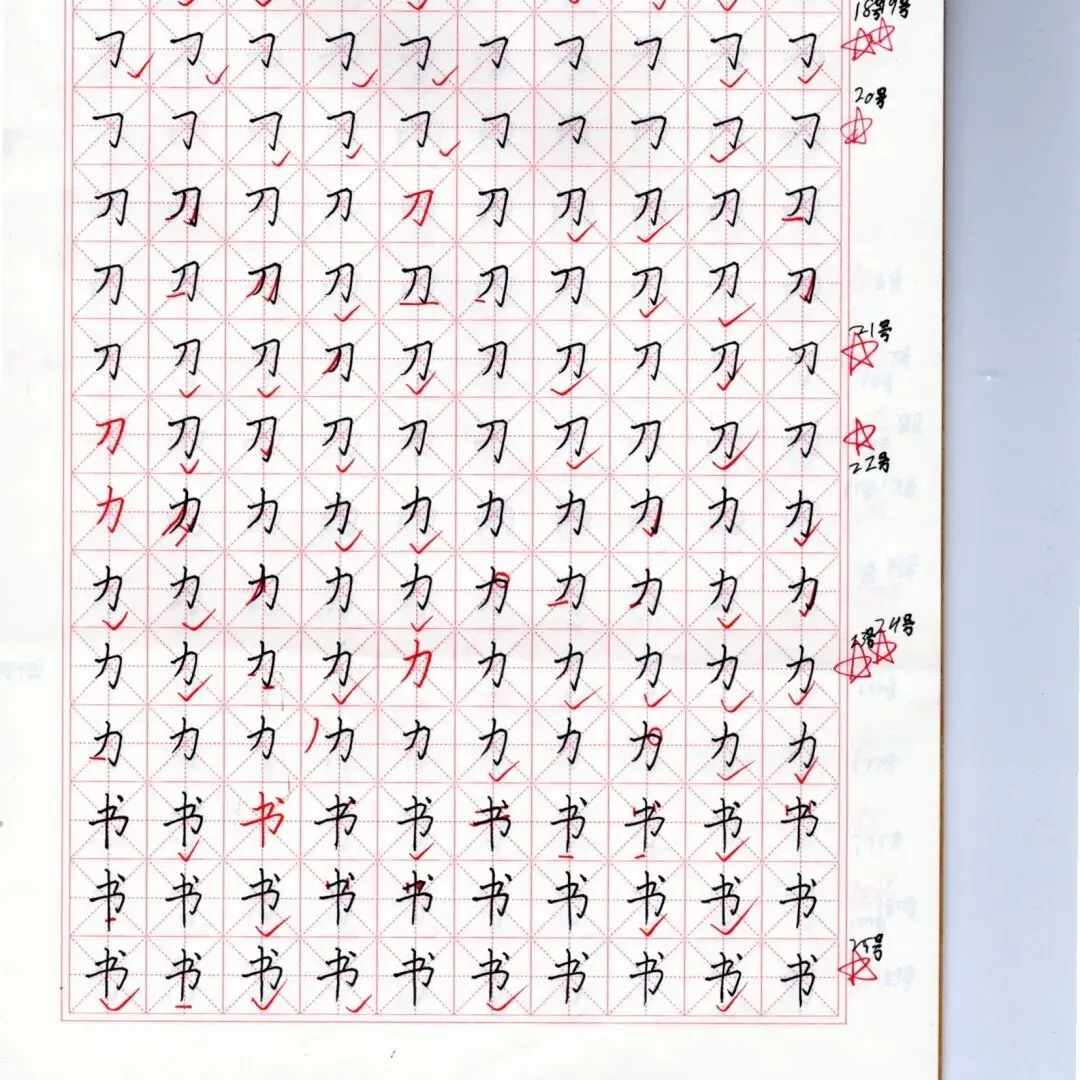 ㇆㇆㇆㇆㇆㇆㇆㇆㇆㇆ 18号19号
㇆㇆㇆㇆㇆㇆㇆㇆㇆㇆ 20号
刀刀刀刀刀刀刀刀刀刀
刀刀刀刀刀刀刀刀刀刀
刀刀刀刀刀刀刀刀刀刀 21号
刀刀刀刀刀刀刀刀刀刀 22号
力力力力力力力力力力
力力力力力力力力力力
力力力力力力力力力力 23号24号
力力力力力力力力力力
书书书书书书书书书书
书书书书书书书书书书
书书书书书书书书书书 25号